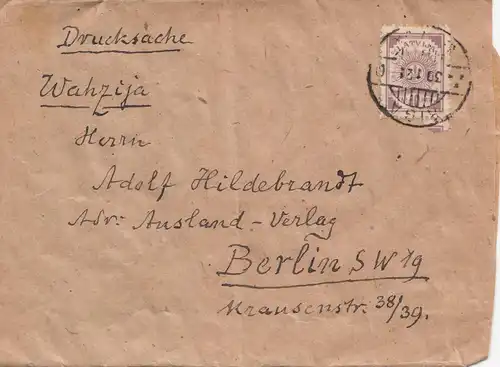 Drucksache
LATVIJA
30.1.21
RIGA
Wahzija
Herrn
Adolf Hildebrandt
Adr: Ausland-Verlag
Berlin SW 19
Krausenstr. 38/39.